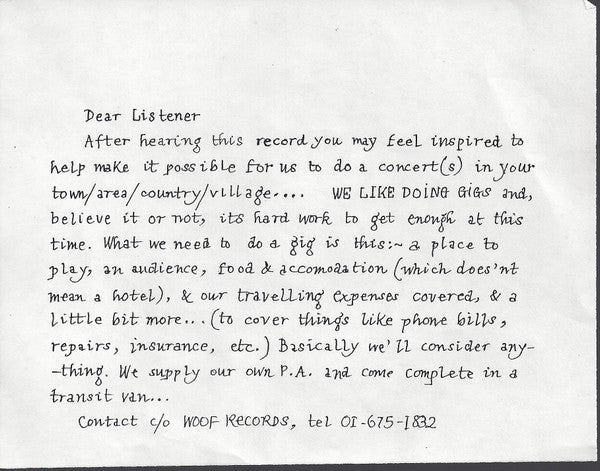 Dear Listener
After hearing this record you may feel inspired to
help make it possible for us to do a concert(s) in your
town/area/country/village.... WE LIKE DOING GIGS and,
believe it or not, its hard work to get enough at this
time. What we need to do a gig is this:~ a place to
play, an audience, food & accomodation (which does'nt
mean a hotel), & our travelling expenses covered, & a
little bit more... (to cover things like phone bills,
repairs, insurance, etc.) Basically we'll consider any-
-thing. We supply our own P.A. and come complete in a
transit van...
Contact c/o WOOF RECORDS, tel 01-675-1832